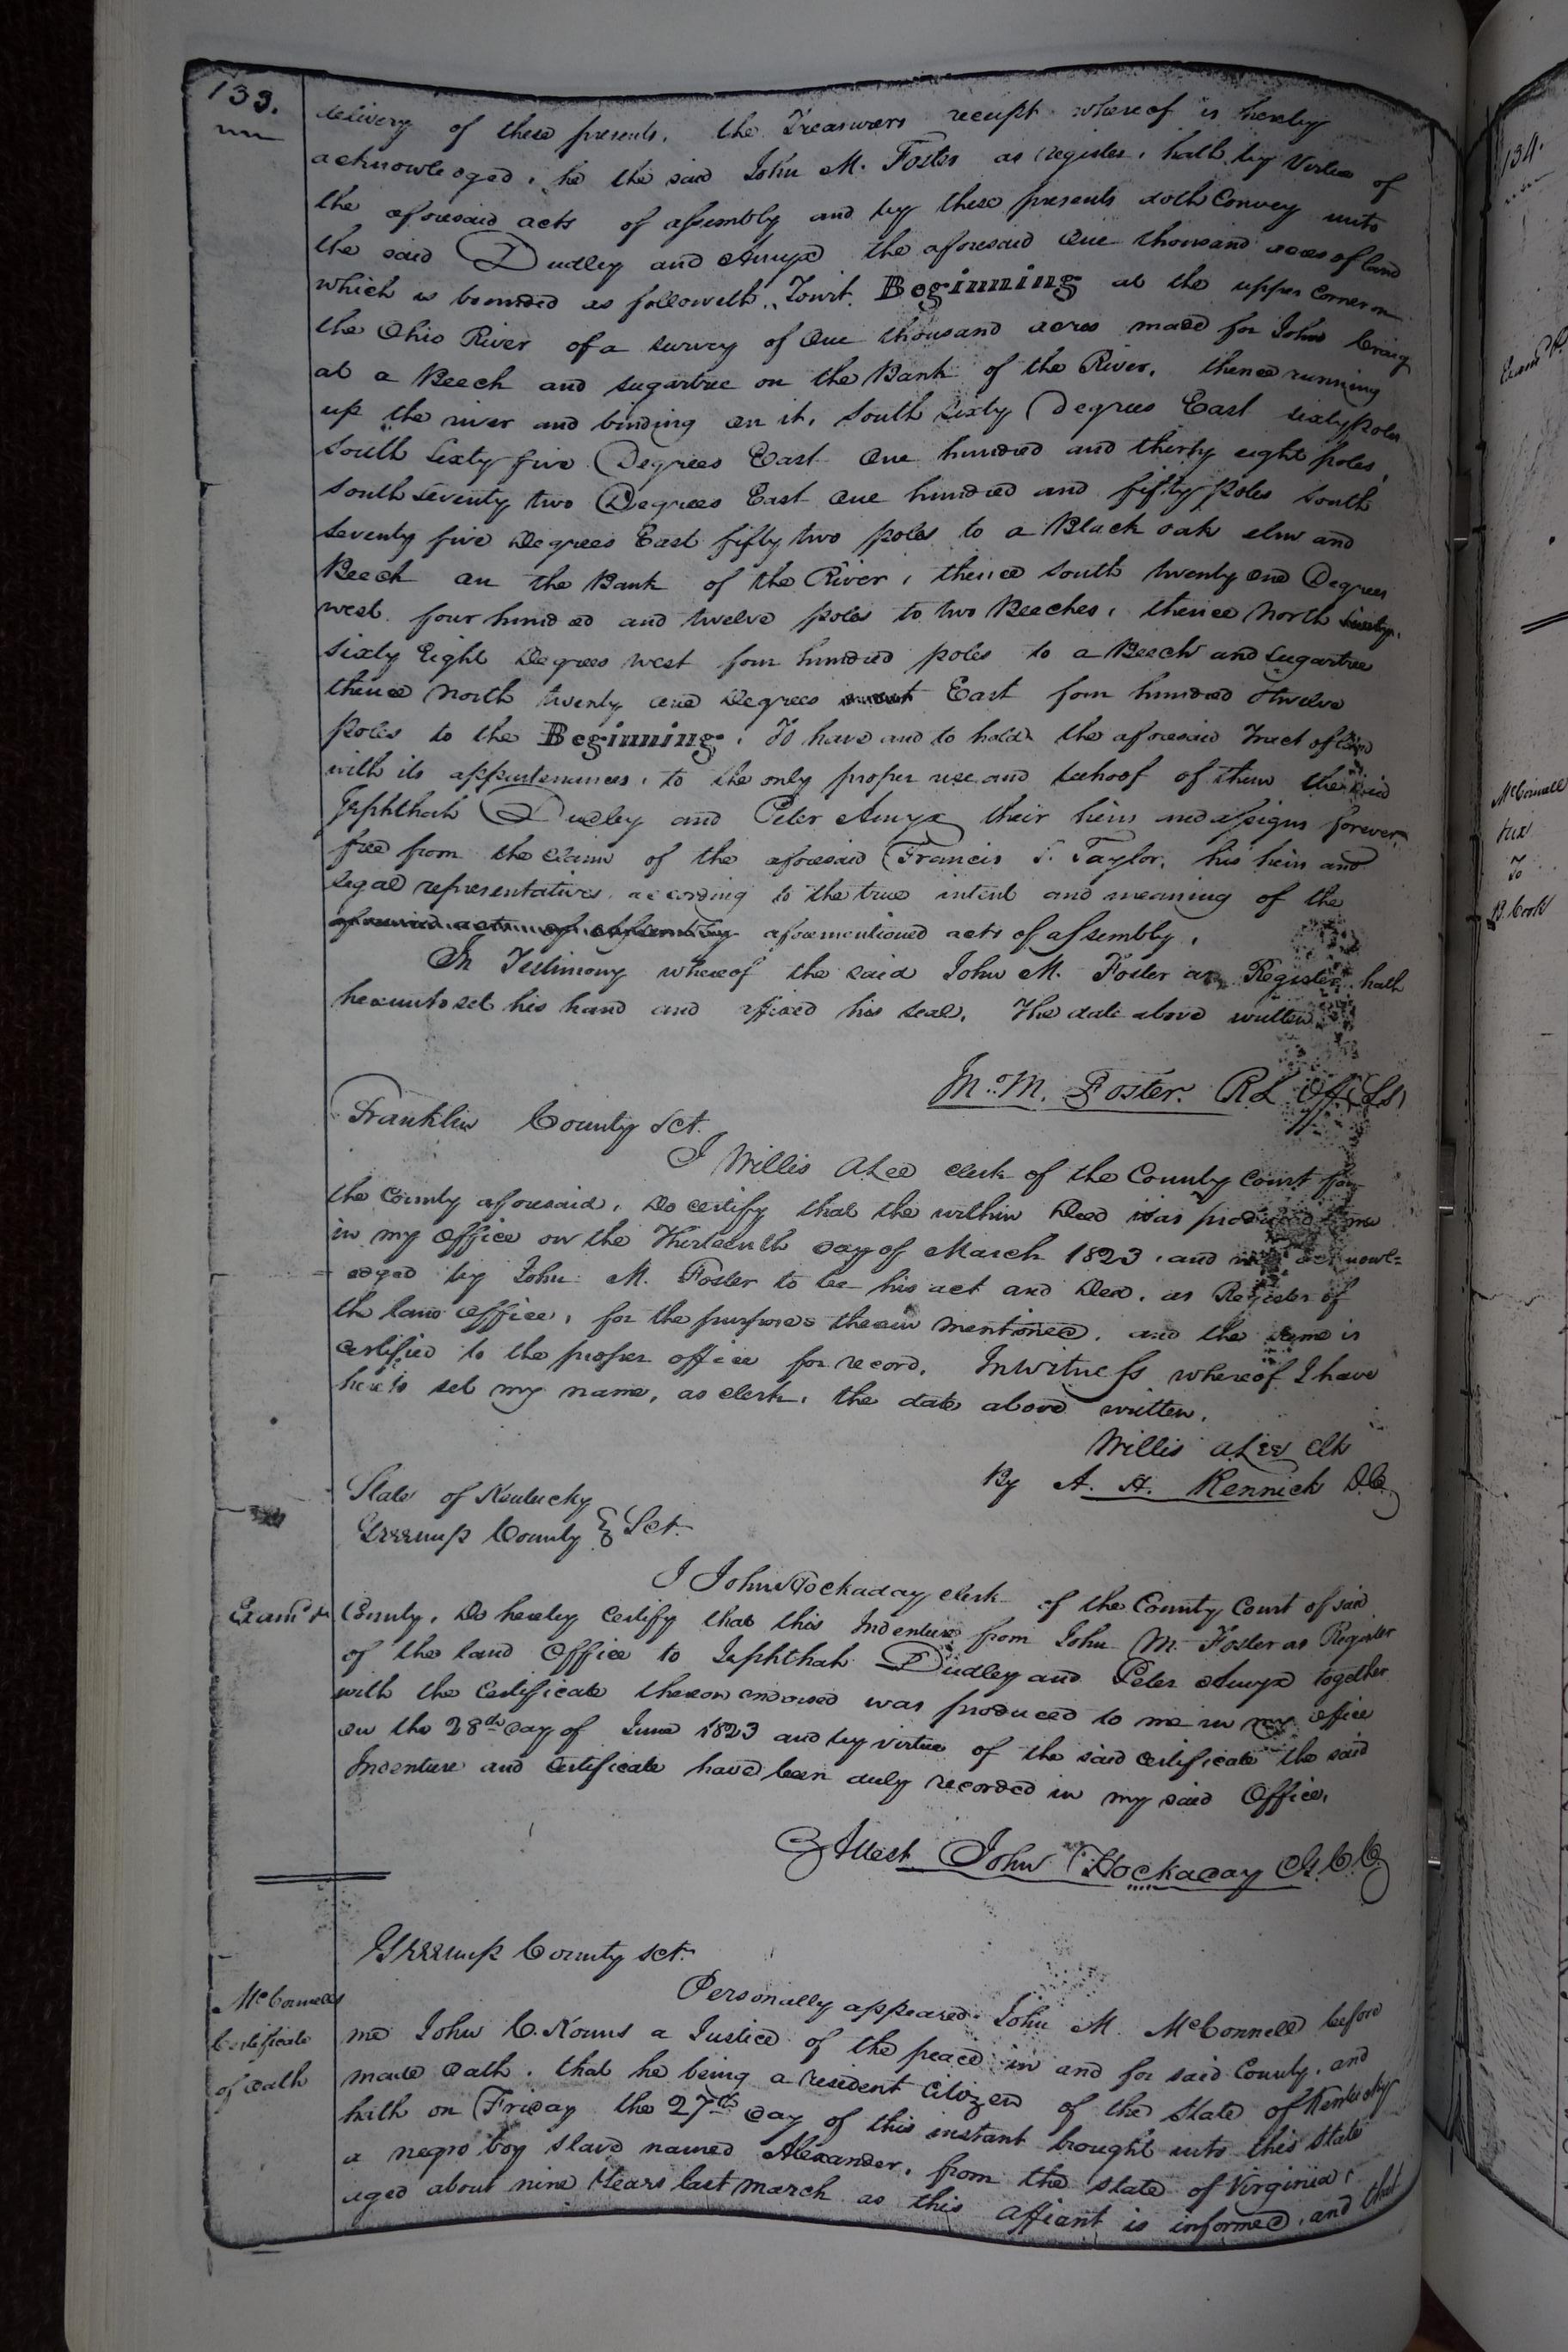 133.
delivery of these presents, the Treasurers receipt whereof is hereby
acknowledged, he the said John M. Foster as register, hath by Virtue of
the aforesaid acts of assembly and by these presents doth Convey unto
the said Dudley and Amyx the aforesaid One thousand acres of land
which is bounded as followeth, Towit. Beginning at the upper corner on
the Ohio River of a survey of One thousand acres made for John Craig
at a Beech and sugartree on the Bank of the River, thence running
up the river and binding on it, South Sixty Degrees East sixty poles
South Sixty five Degrees East One hundred and thirty eight poles,
South Seventy two Degrees East One hundred and fifty Poles South
seventy five Degrees East fifty two poles to a Black oak elm and
Beech on the Bank of the River, thence South twenty one Degrees
west four hundred and twelve poles to two Beeches, thence North
sixty Eight Degrees west four hundred poles to a Beech and Sugartree
thence North twenty one Degrees East four hundred & twelve
Poles to the Beginning, To have and to hold the aforesaid Tract of land
with its appurtenances, to the only proper use and behoof of them the said
Jephthah Dudley and Peter Amyx their heirs and assigns forever
free from the claim of the aforesaid Francis S. Taylor, his heirs and
legal representatives, according to the true intent and meaning of the
aforesaid acts of assembly aforementioned acts of assembly,
In Testimony whereof the said John M. Foster as Register hath
hereunto set his hand and affixed his seal, The date above written
Jno. M. Foster. R L Off (LS)
Franklin County Sct.
I Willis A Lee clerk of the County Court for
the County aforesaid, Do certify that the within Deed was produced to me
in my Office on the Thirteenth day of March 1823, and was acknowl-
edged by John M. Foster to be his act and Deed, as Register of
the land office, for the purposes therein mentioned, and the same is
certified to the proper office for record. In Witness whereof I have
hereto set my name, as clerk, the date above written,
Willis A Lee Clk
By A. H. Rennick D.C.
State of Kentucky
Greenup County } Sct.
I John Hockaday clerk of the County Court of said
Examd
County, Do hereby Certify that this Indenture from John M. Foster as Register
of the land Office to Jephthah Dudley and Peter Amyx together
with the Certificate thereon indorsed was produced to me in my office
on the 28th day of June 1823 and by virtue of the said certificate the said
Indenture and Certificate have been duly recorded in my said Office,
Attest John Hockaday C.G.C.C.
Greenup County sct.
McConnells
Certificate
of Oath
Personally appeared John M. McConnell before
me John C. Kouns a Justice of the peace in and for said County, and
made Oath, that he being a resident Citizen of the State of Kentucky
hath on Friday the 27th day of this instant brought into this State
a negro boy slave named Alexander, from the State of Virginia,
aged about nine Years last march as this affiant is informed, and that
134.
McConnell
&ux
To
B. Cook